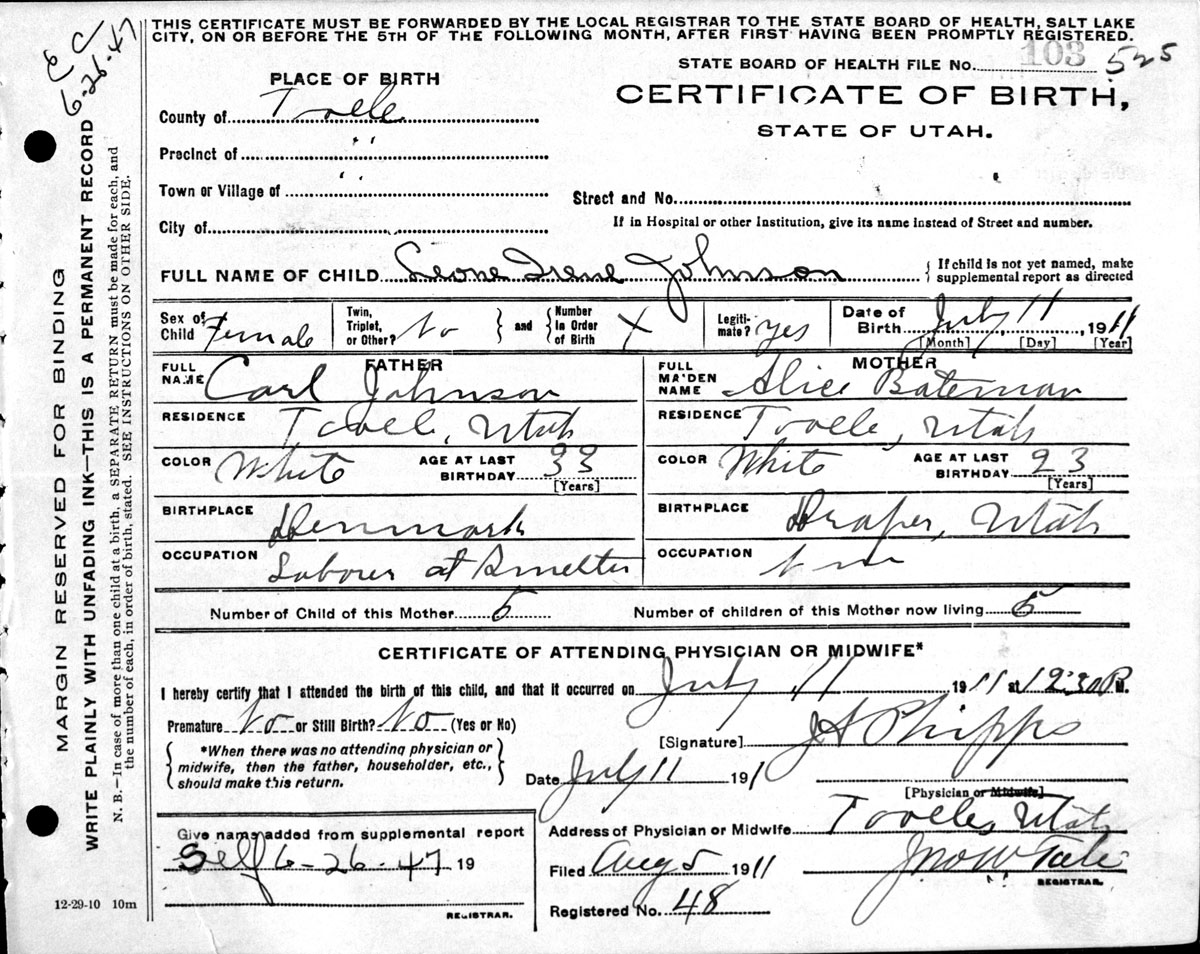 THIS CERTIFICATE MUST BE FORWARDED BY THE LOCAL REGISTRAR TO THE STATE BOARD OF HEALTH, SALT LAKE
CITY, ON OR BEFORE THE 5TH OF THE FOLLOWING MONTH, AFTER FIRST HAVING BEEN PROMPTLY REGISTERED.
6-26-47
STATE BOARD OF HEALTH FILE No. 103 525
PLACE OF BIRTH
CERTIFICATE OF BIRTH,
STATE OF UTAH.
County of Tooele
Precinct of " "
Town or Village of " "
Street and No.
City of
If in Hospital or other Institution, give its name instead of Street and number.
FULL NAME OF CHILD Leone Irene Johnson { If child is not yet named, make supplemental report as directed
Sex of Child Female Twin, Triplet, or Other? No } and { Number in Order of Birth X Legitimate? yes Date of Birth July 11, 1911
[Month] [Day] [Year]
FATHER
MOTHER
FULL NAME Carl Johnson
FULL MAIDEN NAME Alice Bateman
RESIDENCE Tooele, Utah
RESIDENCE Tooele, Utah
COLOR White AGE AT LAST BIRTHDAY 33 [Years]
COLOR White AGE AT LAST BIRTHDAY 23 [Years]
BIRTHPLACE Denmark
BIRTHPLACE Draper, Utah
OCCUPATION Laborer at Smelter
OCCUPATION
Number of Child of this Mother 5 Number of children of this Mother now living 5
CERTIFICATE OF ATTENDING PHYSICIAN OR MIDWIFE*
I hereby certify that I attended the birth of this child, and that it occurred on July 11 1911 at 12:30 P.M.
Premature No or Still Birth? No (Yes or No)
{ *When there was no attending physician or midwife, then the father, householder, etc., should make this return. }
[Signature] JA Phipps
Date July 11 1911
[Physician or Midwife]
Give name added from supplemental report
Self 6-26-47 19
REGISTRAR.
Address of Physician or Midwife Tooele, Utah
Filed Aug 5 1911 Jno W Tate
REGISTRAR.
Registered No. 48
12-29-10 10m
MARGIN RESERVED FOR BINDING
WRITE PLAINLY WITH UNFADING INK—THIS IS A PERMANENT RECORD
N. B.—In case of more than one child at a birth, a SEPARATE RETURN must be made for each, and
the number of each, in order of birth, stated. SEE INSTRUCTIONS ON OTHER SIDE.